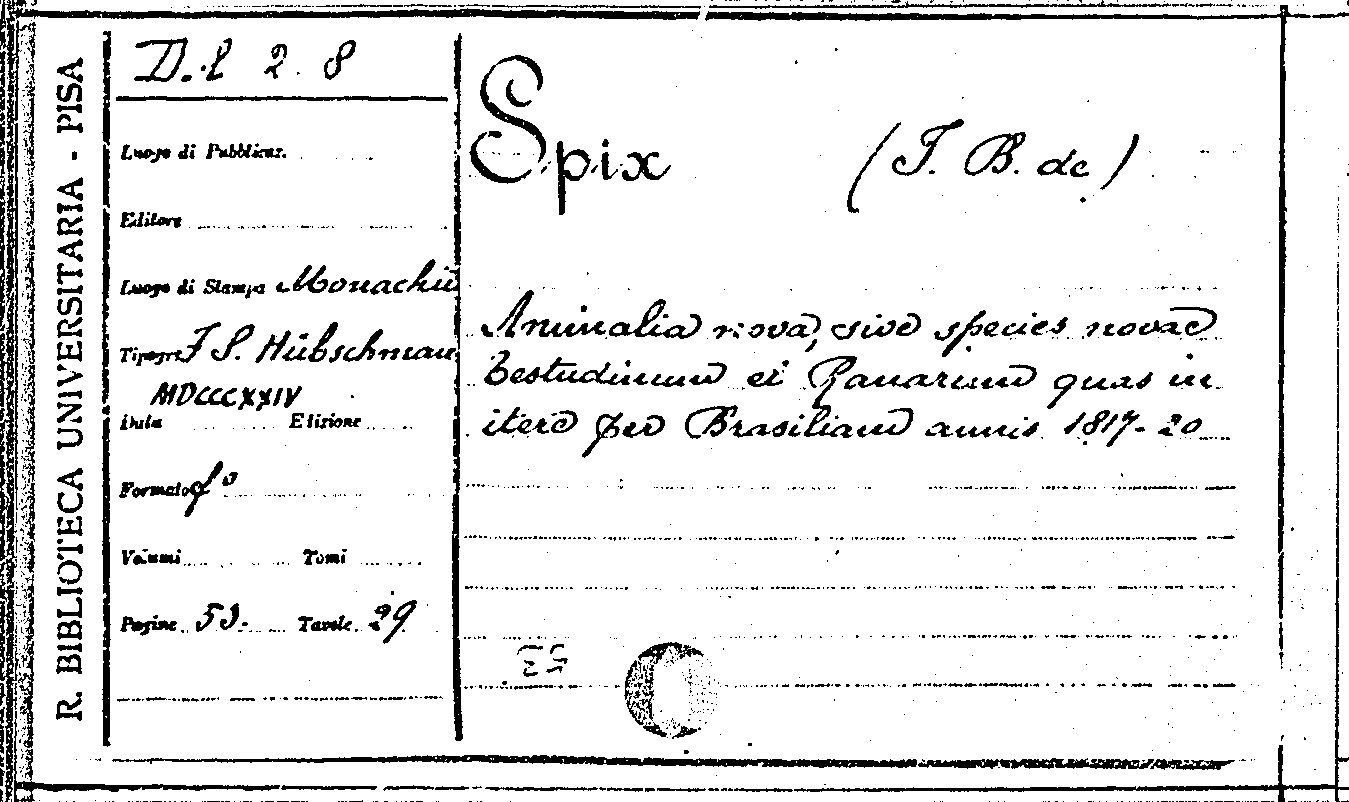 R. BIBLIOTECA UNIVERSITARIA - PISA
D. l 2. 8
Luogo di Pubblicaz.
Editore
Luogo di Stampa Monachii
Tipogr. F S. Hübschman
MDCCCXXIV
Data Edizione
Formato fo
Volumi Tomi
Pagine 53. Tavole 29
Spix (J. B. de)
Animalia nova, sive species novae
testudinum et Ranarum quas in
itere per Brasiliam annis 1817-20